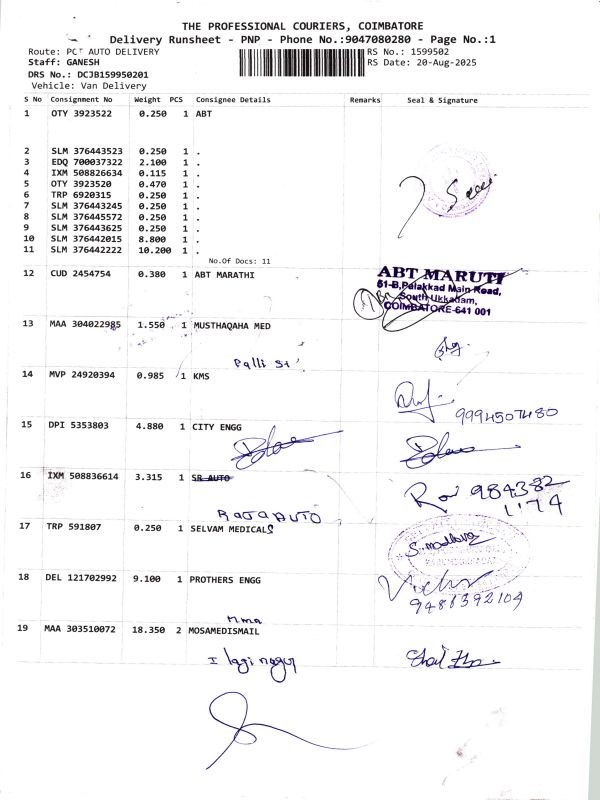 THE PROFESSIONAL COURIERS, COIMBATORE
Delivery Runsheet - PNP - Phone No.:9047080280 - Page No.:1
Route: PCT AUTO DELIVERY RS No.: 1599502
Staff: GANESH RS Date: 20-Aug-2025
DRS No.: DCJB159950201
Vehicle: Van Delivery
S No Consignment No Weight PCS Consignee Details Remarks Seal & Signature
1 OTY 3923522 0.250 1 ABT
2 SLM 376443523 0.250 1 .
3 EDQ 700037322 2.100 1 .
4 IXM 508826634 0.115 1 .
5 OTY 3923520 0.470 1 .
6 TRP 6920315 0.250 1 .
7 SLM 376443245 0.250 1 .
8 SLM 376445572 0.250 1 .
9 SLM 376443625 0.250 1 .
10 SLM 376442015 8.800 1 .
11 SLM 376442222 10.200 1 .
No.Of Docs: 11
12 CUD 2454754 0.380 1 ABT MARATHI
ABT MARUTI
51-B,Palakkad Main Road,
South Ukkadam,
COIMBATORE-641 001
13 MAA 304022985 1.550 1 MUSTHAQAHA MED
Palli St
14 MVP 24920394 0.985 1 KMS
9994507480
15 DPI 5353803 4.880 1 CITY ENGG
16 IXM 508836614 3.315 1 SR AUTO
984382
1174
RAJA AUTO
17 TRP 591807 0.250 1 SELVAM MEDICALS
18 DEL 121702992 9.100 1 PROTHERS ENGG
9488392104
19 MAA 303510072 18.350 2 MOSAMEDISMAIL